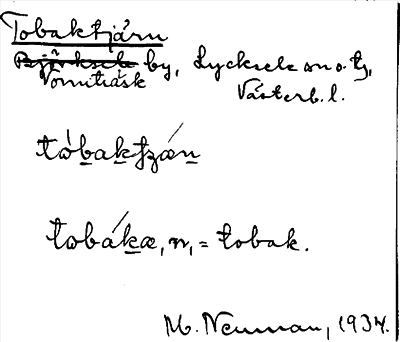 Tobaktjärn
Björksele by, Lycksele sn o. tg,
Vormträsk
Västerb. l.
tòbaktzǽn
tobákæ, n, = tobak.
M. Neuman, 1934.